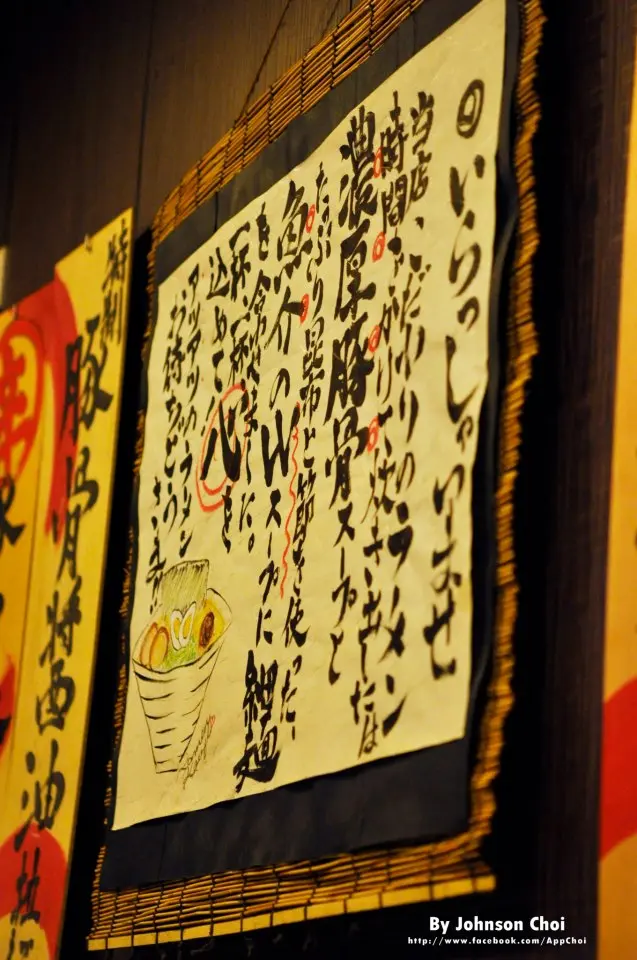 いらっしゃいませ
当店、こだわりのラーメン
時間
濃厚豚骨スープと
たっぷり昆布と節を使った
魚介のWスープに細麺
を合わせました。
一杯、一杯、心を
込めて
アツアツのラーメン
お待ちどうさま!!
特製
豚骨醤油拉
By Johnson Choi
http://www.facebook.com/AppChoi